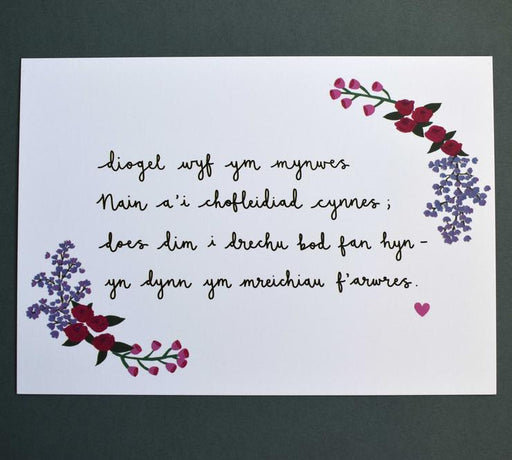 diogel wyf ym mynwes
Nain a'i chofleidiad cynnes;
does dim i drechu bod fan hyn -
yn dynn ym mreichiau f'arwres.